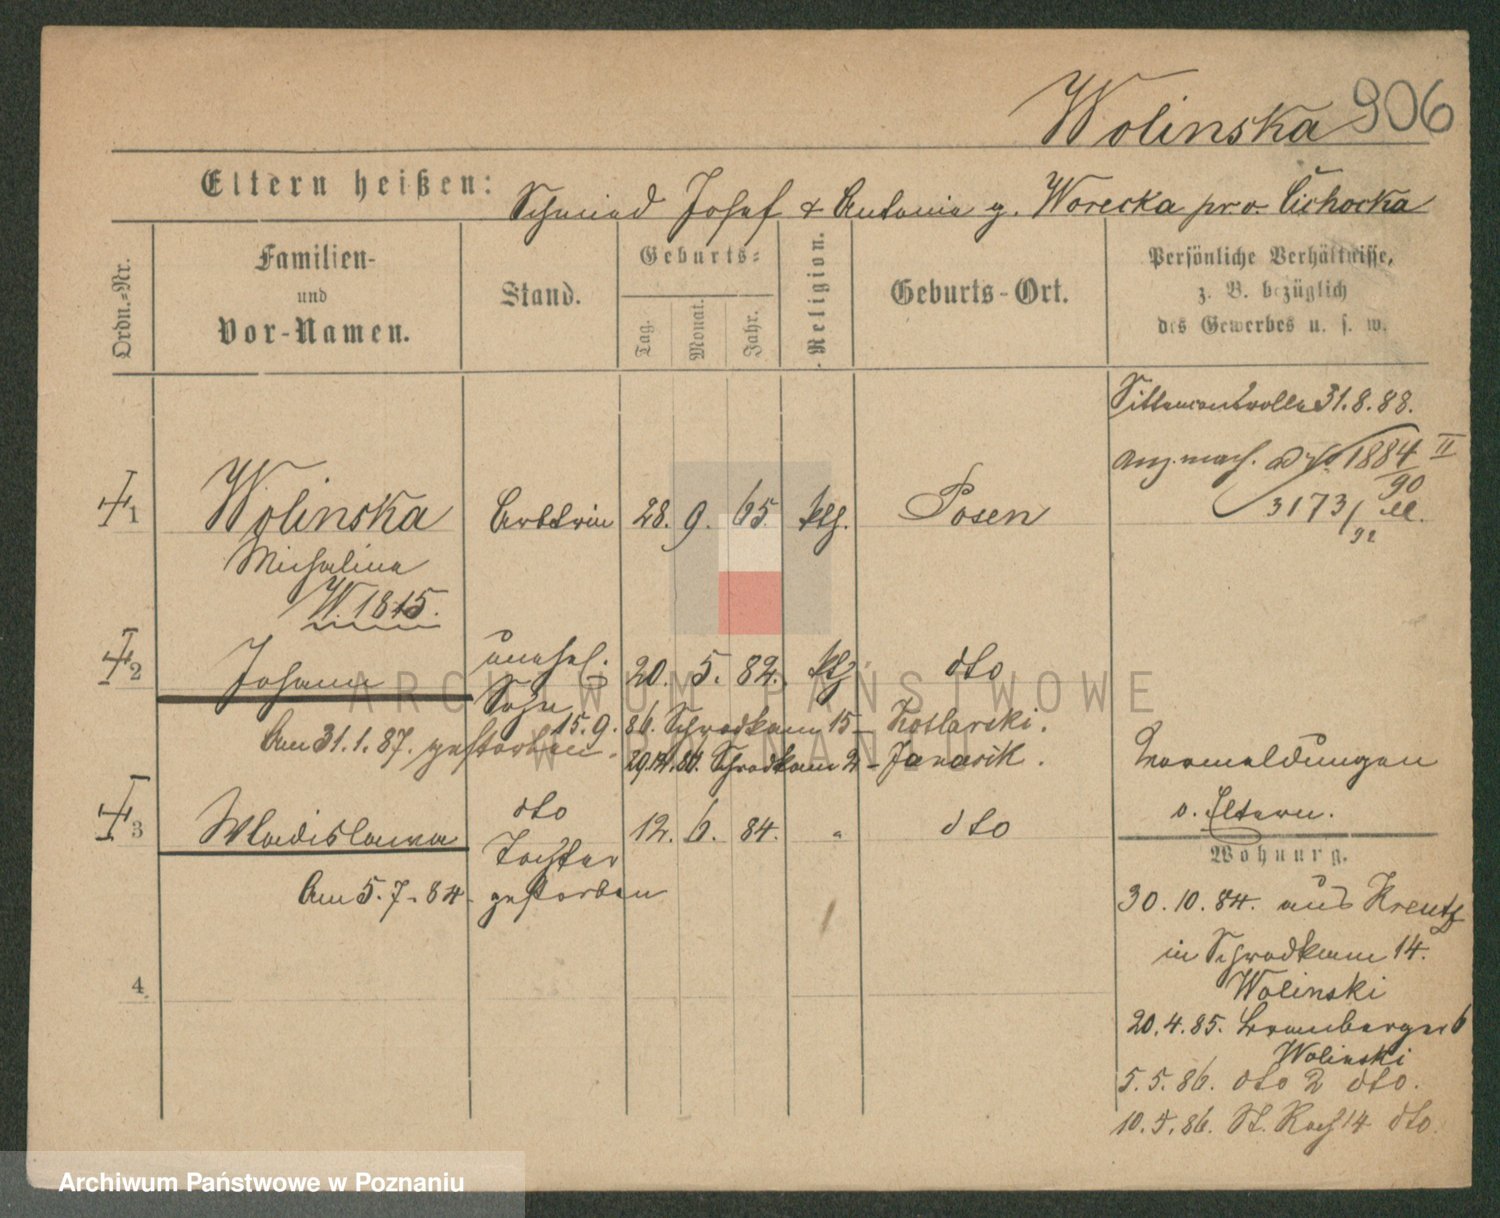 Wolinska 906
Eltern heißen: Schmied Josef & Antonie g. Worecka pro. Cichocka
Ordn.-Nr.
Familien-
und
Vor-Namen.
Stand.
Geburts-
Tag.
Monat.
Jahr.
Religion.
Geburts-Ort.
Persönliche Verhältnisse,
z. B. bezüglich
des Gewerbes u. s. w.
Sittencontrolle 31.8.88.
1884 II
90
3173/
92
1 Wolinska Arbtrin 28. 9. 65 ktg. Posen
Michalina
W. 1815.
2 Johann unehel. Sohn 20. 5. 82. ktg dto
15.9.86. Schrodkam 15 - Kotlarski.
Am 31.1.87. gestorben.
Schrodkam 2 - Janasik.
3 Wladislawa dto Tochter 12. 6. 84. " dto
Am 5.7.84. gestorben
4
Vormeldungen
v. Eltern.
Wohnung.
30.10.84. aus Kreutz
in Schrodkam 14.
Wolinski
20.4.85. Bromberger 6
Wolinski
5.5.86. dto 2 dto.
10.5.86. St. Roch 14 dto.
ARCHIWUM PAŃSTWOWE
W POZNANIU
Archiwum Państwowe w Poznaniu